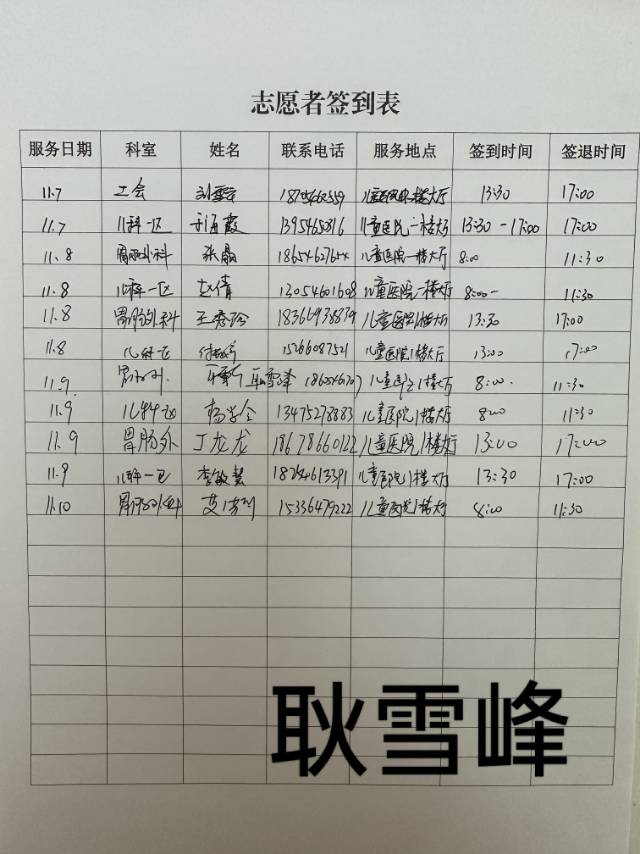 志愿者签到表
服务日期 科室 姓名 联系电话 服务地点 签到时间 签退时间
11.7 工会 儿童医院一楼大厅 13:30 17:00
11.7 儿科一区 于海霞 儿童医院一楼大厅 13:30-17:00 17:00
11.8 胃肠外科 张晶 儿童医院一楼大厅 8:00 11:30
11.8 儿科一区 赵倩 13054601608 儿童医院一楼大厅 8:00- 11:30
11.8 胃肠外科 儿童医院1楼大厅 13:30 17:00
11.8 儿科一区 15266087521 儿童医院1楼大厅 13:00 17:00
11.9 耿雪峰 1楼大厅 8:00 11:30
11.9 儿科 13475278883 儿童医院1楼大厅 8:00 11:30
11.9 胃肠外 丁龙龙 18678660122 儿童医院1楼大厅 13:00 17:00
11.9 儿科一区 李敏慧 儿童医院1楼大厅 13:30 17:00
11.10 胃肠外科 15336479222 儿童医院1楼大厅 8:00 11:30
耿雪峰